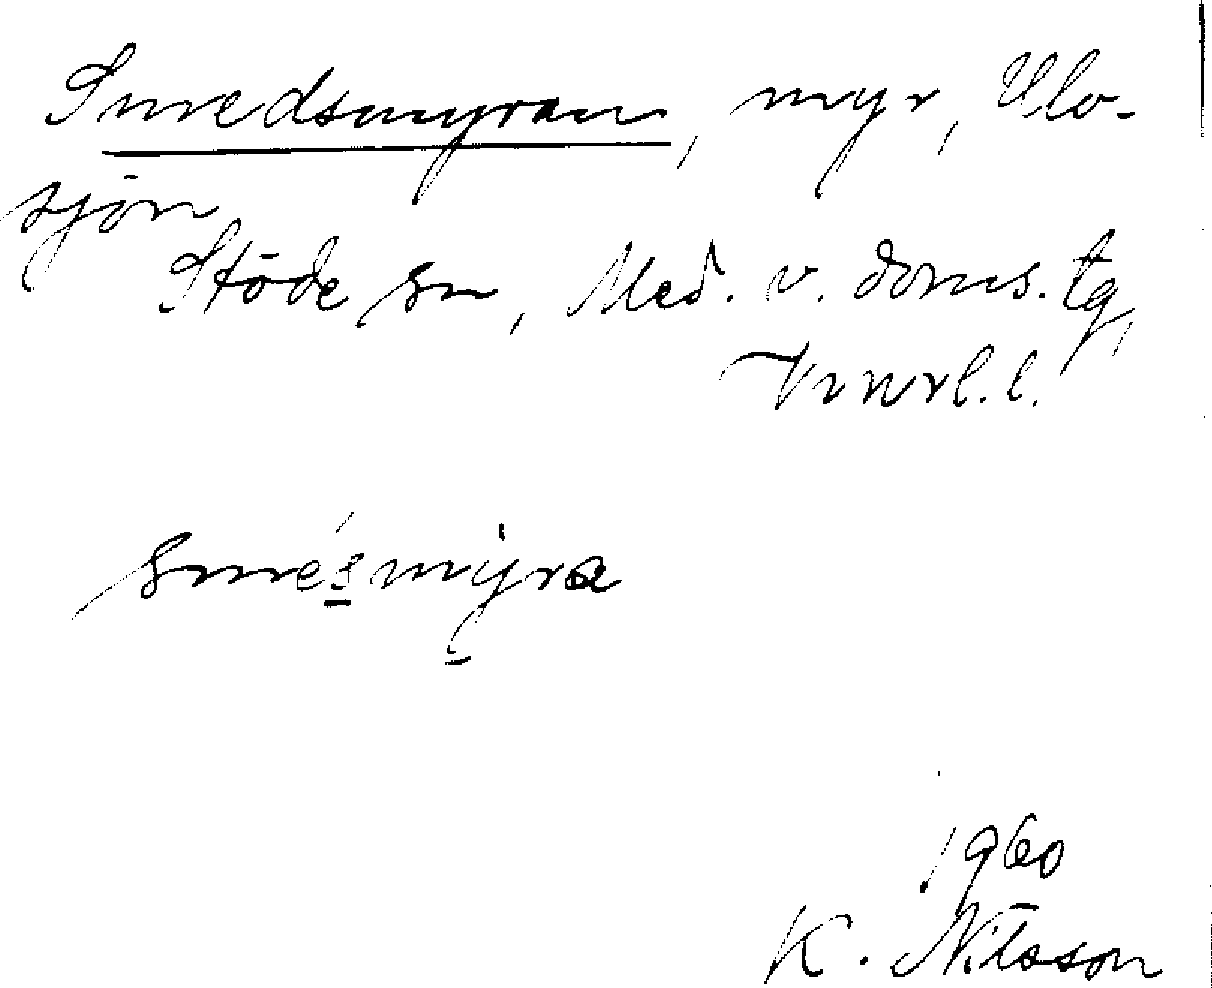 Smedsmyran, myr, Ulo-
sjön
Stöde sn, Med. v. doms. tg,
Vnrl. l.
smésmỳra
1960
K. Nilsson